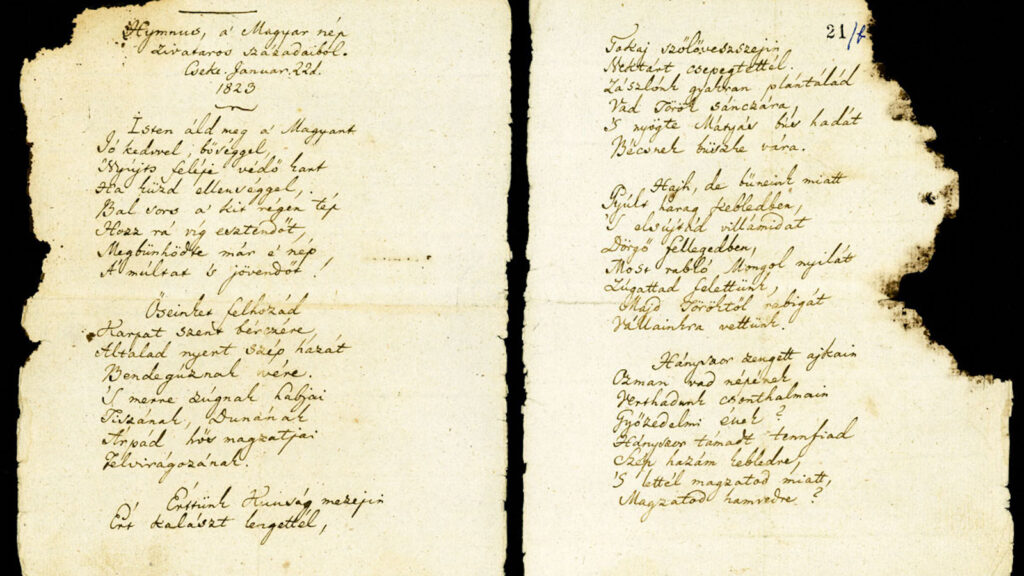 Hymnus, a' Magyar nép
zivataros századaiból.
Cseke. Januar. 22d.
1823
Isten áld meg a' Magyart
Jó kedvvel, bőséggel,
Nyújts feléje védő kart
Ha küzd ellenséggel,
Bal sors a' kit régen tép
Hozz rá víg esztendőt,
Megbűnhődte már e' nép
A' multat 's jövendőt!
Őseinket felhozád
Kárpát szent bérczére,
Általad nyert szép hazát
Bendegúznak vére.
'S merre zúgnak habjai
Tiszának, Dunának
Árpád hős magzatjai
Felvirágozának.
Értünk Kunság mezején
Ért kalászt lengettél,
21/f
Tokaj szőlővesszején
Nektárt csepegtettél.
Zászlónk gyakran plántálád
Vad Török sánczára,
'S nyögte Mátyás bús hadát
Bécsnek büszke vára.
Hajh, de bűneink miatt
Gyúlt harag kebledben,
'S elsújtád villámidat
Dörgő fellegedben,
Most rabló Mongol nyilát
Zúgattad felettünk,
Majd Töröktől rabigát
Vállainkra vettünk.
Hányszor zengett ajkain
Ozman vad népének
Vert hadunk csonthalmain
Győzedelmi ének?
Hányszor támadt tennfiad
Szép hazám kebledre,
'S lettél magzatod miatt,
Magzatod hamvvedre?